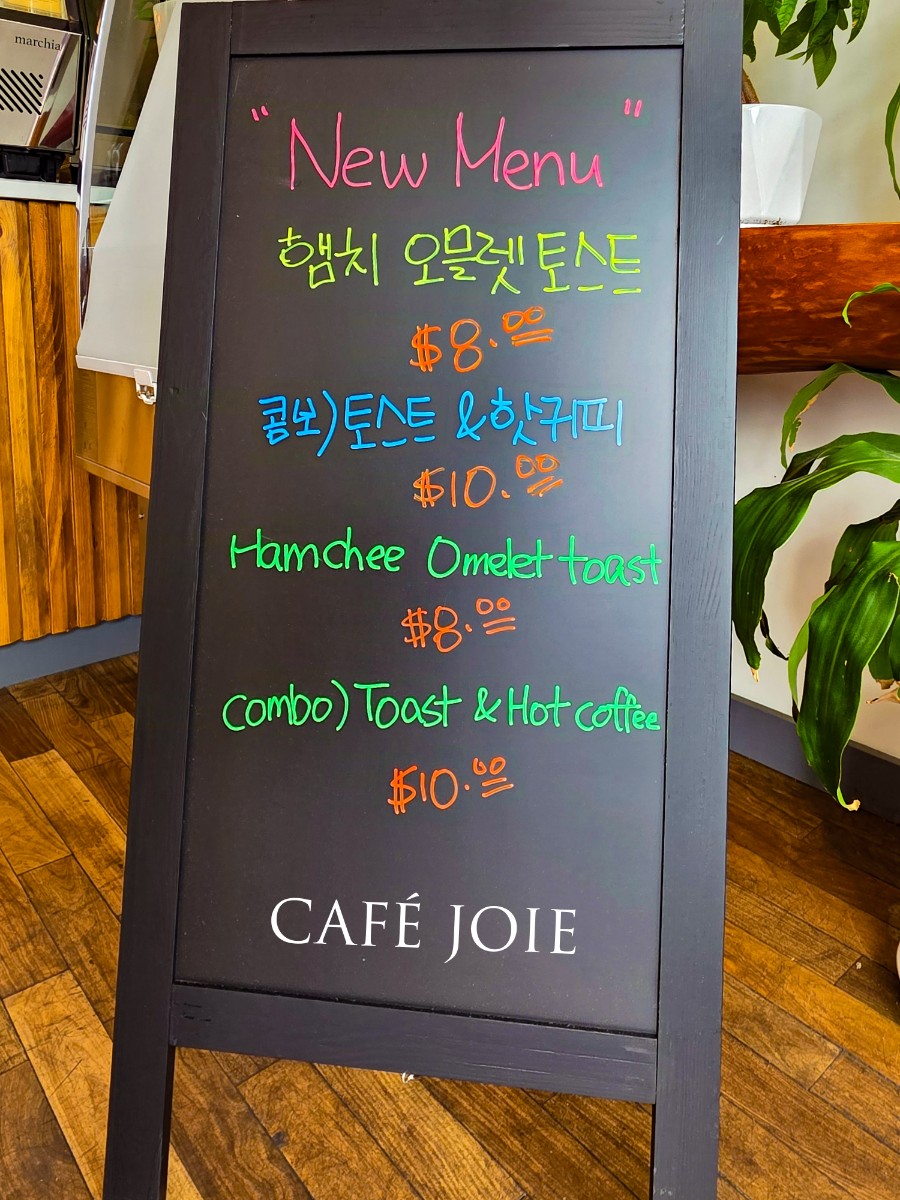 marchia
"New Menu"
햄치 오믈렛 토스트
$8.00
콤보) 토스트 & 핫커피
$10.00
Hamchee Omelet toast
$8.00
combo) Toast & Hot coffee
$10.00
CAFÉ JOIE